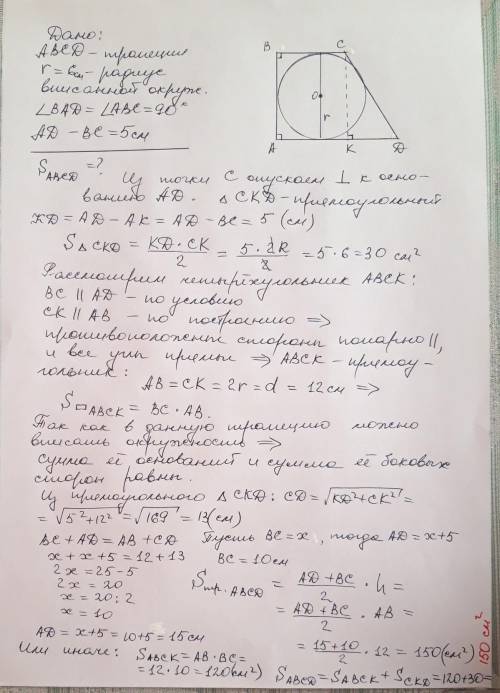 Дано:
ABCD - трапеция
r = 6см - радиус
вписанной окруж.
∠BAD = ∠ABC = 90°
AD - BC = 5см
B C
O
r
A K D
S_ABCD = ? Из точки C опускаем ⊥ к осно-
ванию AD. △CKD - прямоугольный
KD = AD - AK = AD - BC = 5 (см)
S△CKD = KD·CK/2 = 5·2R/2 = 5·6 = 30 см²
Рассмотрим четырёхугольник ABCK:
BC || AD - по условию
CK || AB - по построению ⇒
противоположн стороны попарно ||,
и все углы прямы ⇒ ABCK - прямоу-
гольник:
AB = CK = 2r = d = 12 см ⇒
S□ABCK = BC · AB.
Так как в данную трапецию можно
вписать окружность ⇒
сумма её оснований и сумма её боковых
сторон равны.
Из прямоугольного △CKD: CD = √KD²+CK² =
= √5²+12² = √169 = 13(см)
BC + AD = AB + CD Пусть BC = x, тогда AD = x+5
x + x + 5 = 12 + 13 BC = 10см
2x = 25 - 5
2x = 20
x = 20 : 2
x = 10
S тр. ABCD = AD + BC/2 · h =
= AD + BC/2 · AB =
AD = x+5 = 10+5 = 15см
= 15+10/2 · 12 = 150(см²)
Или иначе: S_ABCK = AB · BC =
= 12·10 = 120(см²)
S_ABCD = S_ABCK + S_CKD = 120+30 =
150 см²